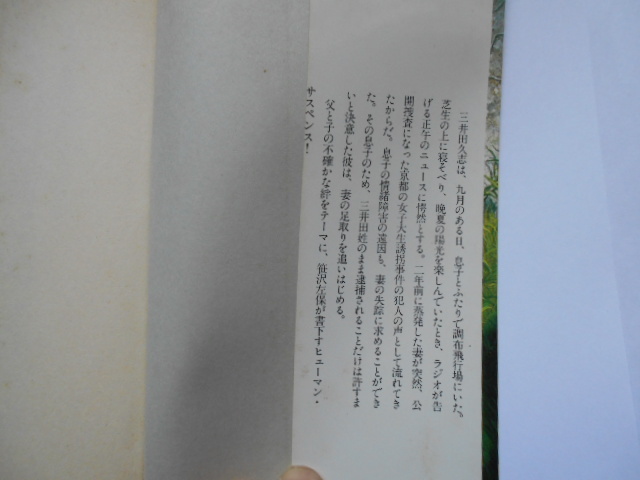 三井田久志は、九月のある日、息子とふたりで調布飛行場にいた。
芝生の上に寝そべり、晩夏の陽光を楽しんでいたとき、ラジオが告
げる正午のニュースに愕然とする。二年前に蒸発した妻が突然、公
開捜査になった京都の女子大生誘拐事件の犯人の声として流れてき
たからだ。息子の情緒障害の遠因も、妻の失踪に求めることができ
た。その息子のため、三井田姓のまま逮捕されることだけは許すま
いと決意した彼は、妻の足取りを追いはじめる。
父と子の不確かな絆をテーマに、笹沢左保が書下すヒューマン・
サスペンス!